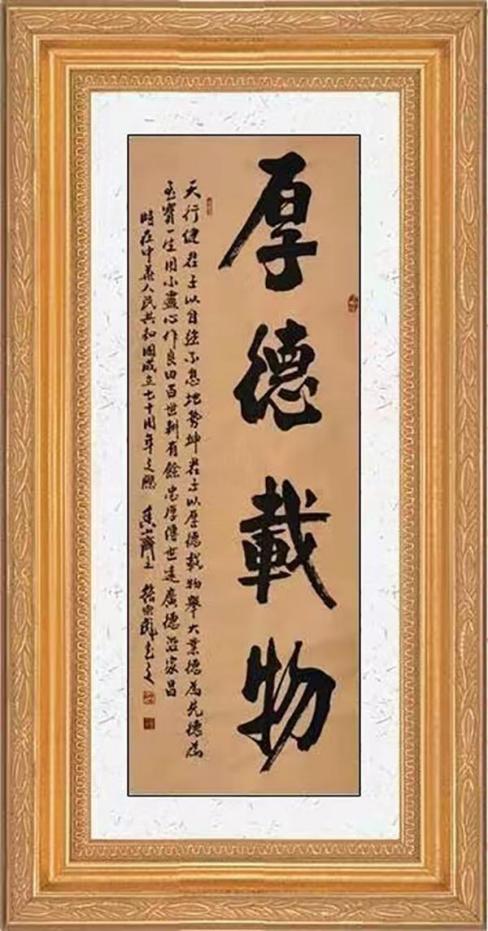 厚德載物
天行健君子以自強不息地勢坤君子以厚德載物舉大業德為先德為
至寶一生用心作良田百世耕有餘忠厚傳世遠廣德照家昌
時在中華人民共和國成立七十周年之際